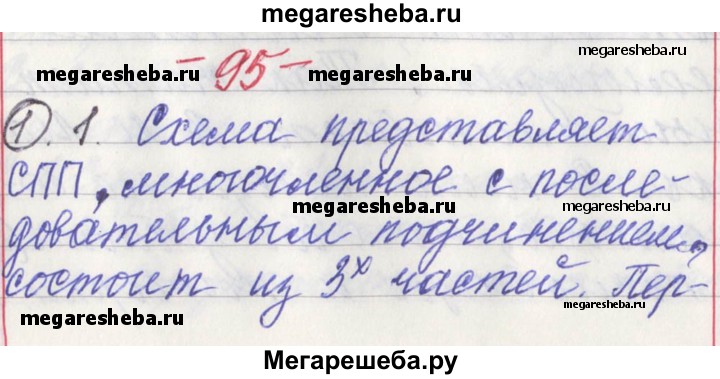 megaresheba.ru
megaresheba.ru
- 95 -
megaresheba.ru
megaresheba.ru
1. 1. Схема представляет
megaresheba.ru
СПП, многочленное с после-
megaresheba.ru
megaresheba.ru
довательным подчинением,
состоит из 3х частей. Пер-
megaresheba.ru
megaresheba.ru
Мегарешеба.ру